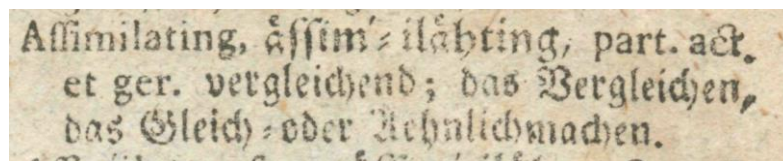 Aſſimilating, åſſim'⸗ilåhting, part. act.
et ger. vergleichend; das Vergleichen,
das Gleich⸗oder Aehnlichmachen.